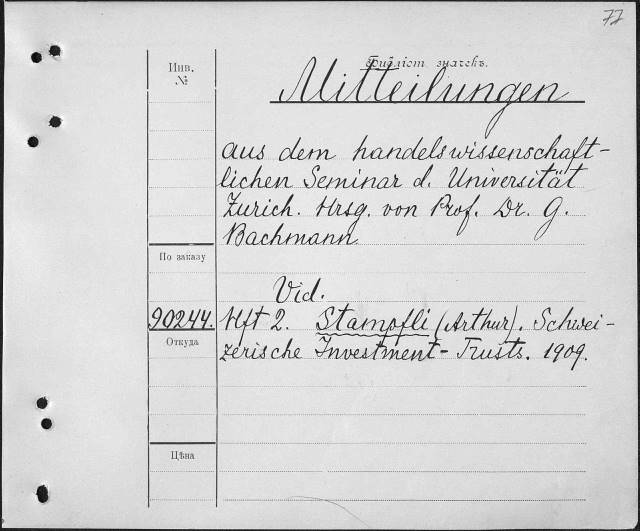 77
Инв.
№
Библіот значекъ.
Mitteilungen
aus dem handelswissenschaft-
lichen Seminar d. Universität
Zürich. Hrsg. von Prof. Dr. G.
Bachmann
По заказу
Vid.
90244.
Hft 2. Stampfli (Arthur). Schwei-
zerische Investment-Trusts. 1909.
Откуда
Цѣна